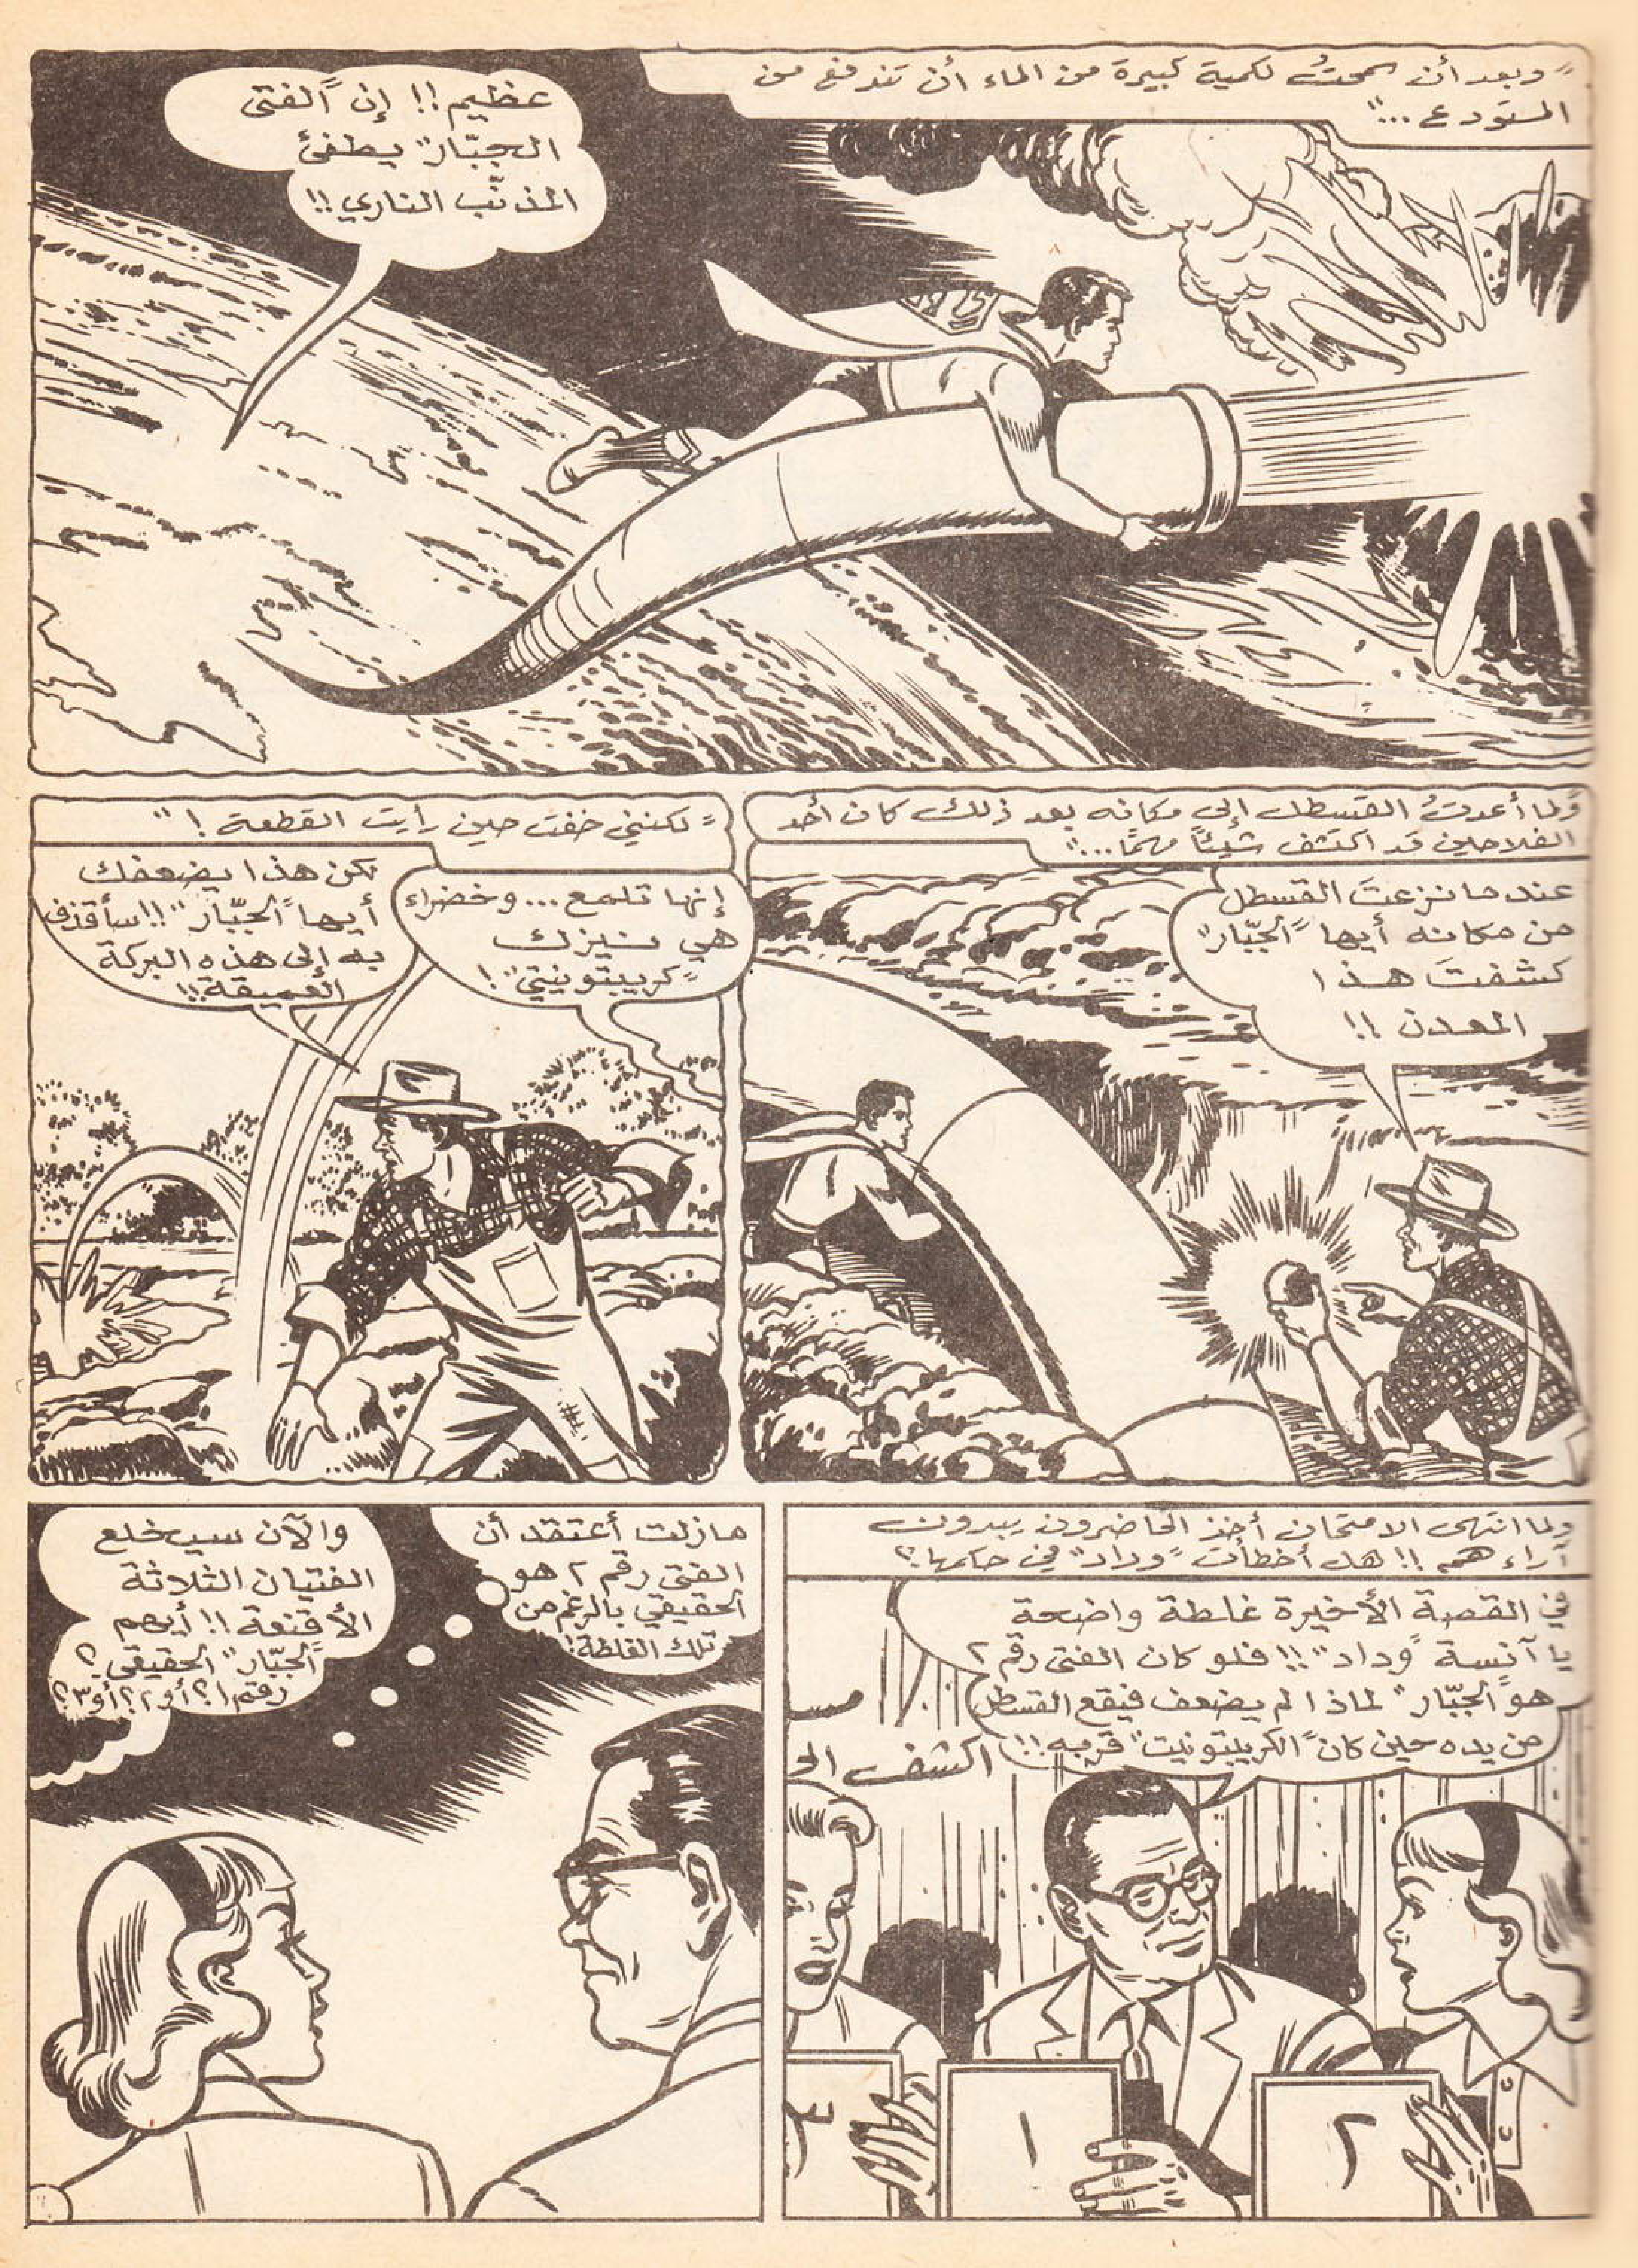 "وبعد أن سمحتُ لكمية كبيرة من الماء أن تندفع من
المستودع ..."
عظيم!! إن "الفتى
الجبّار" يطفئ
المذنّب الناري!!
"ولما أعدتُ القسطل إلى مكانه بعد ذلك كان أحد
الفلاحين قد اكتشف شيئاً مهمًا..."
عندما نزعتَ القسطل
من مكانه أيها "الجبّار"
كشفتَ هذا
المعدن!!
"لكنني خفت حين رأيت القطعة!"
إنها تلمع... وخضراء
هي نيزك
"كريبتونيتي"!
لكن هذا يضعفك
أيها "الجبّار"!! سأقذف
به إلى هذه البركة
العميقة!!
ولما انتهى الامتحان أخذ الحاضرون يبدون
آراءهم!! هل أخطأت "وداد" في حكمها؟
في القصة الأخيرة غلطة واضحة
يا آنسة "وداد"!! فلو كان الفتى رقم ٢
هو "الجبّار" لماذا لم يضعف فيقع القسطل
من يده حين كان "الكريبتونيت" قربه!!
اكشف الـ
٣
١
٢
مازلت أعتقد أن
الفتى رقم ٢ هو
الحقيقي بالرغم من
تلك الغلطة!
والآن سيخلع
الفتيان الثلاثة
الأقنعة!! أيهم
"الجبّار" الحقيقي؟
رقم ١؟ أو ٢؟ أو ٣؟